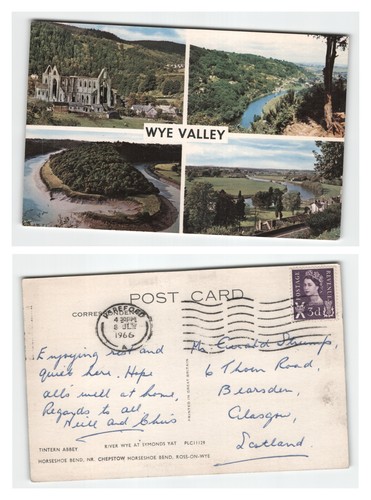 WYE VALLEY
POST CARD
CORRES
HEREFORD
4 30 PM
1966
A
POSTAGE
REVENUE
3d
Enjoying rest and
quiet here. Hope
all's well at home,
Regards to all
Neill and Chris
6 Thorn Road,
Bearsden,
Glasgow,
Scotland.
PRINTED IN GREAT BRITAIN
TINTERN ABBEY
RIVER WYE AT SYMONDS YAT
PLC11129
HORSESHOE BEND, NR. CHEPSTOW
HORSESHOE BEND, ROSS-ON-WYE